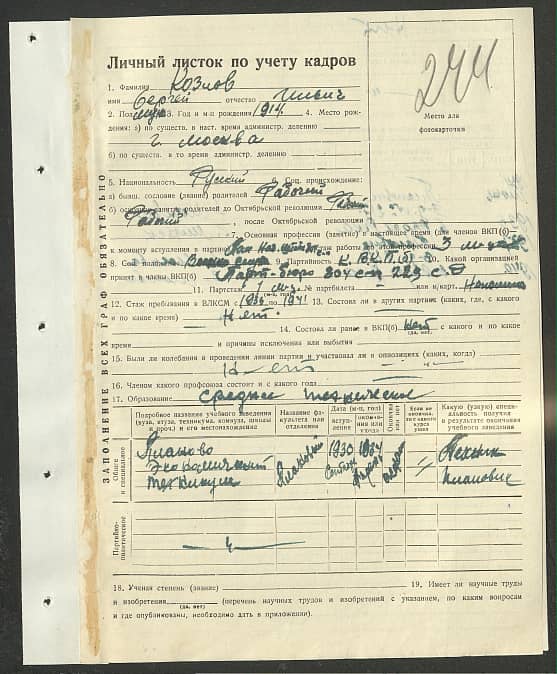 244
Личный листок по учету кадров
Место для
фотокарточки
1. Фамилия Козлов
имя Сергей отчество Ильич
2. Пол муж 3. Год и м-ц рождения 1914. 4. Место рож-
дения: а) по существ. в наст. время административ. делению
г. Москва
б) по существ. в то время админист. делению
5. Национальность Русский 6. Соц. происхождение:
а) бывш. сословие (звание) родителей Рабочий
б) основное занятие родителей до Октябрьской революции
Рабочий, после Октябрьской революции
7. Основная профессия (занятие) в настоящее время (для членов ВКП(б)—
к моменту вступления в партию) стаж работы по этой профессии 3 м-ца
8. Соц. положение 9. Партийность К. ВКП(б) 10. Какой организацией
принят в члены ВКП(б) Парт-бюро 304 сп 229 с.д
11. Партстаж № партбилета или к/карт.
12. Стаж пребывания в ВЛКСМ с 1936 по 1941 13. Состоял ли в других партиях (каких, где, с какого
и по какое время) Нет.
14. Состоял ли ранее в ВКП(б) Нет с какого и по какое
время и причины исключения или выбытия
15. Были ли колебания в проведении линии партии и участвовал ли в оппозициях (каких, когда)
Нет
16. Членом какого профсоюза состоит и с какого года
17. Образование среднее техническое
Подробное название учебного заведения (вуза, втуза, техникума, комвуза, школы и проч.) и его местонахождение
Название факультета или отделения
Дата (м-ц, год)
вступления
окончания или ухода
Окончил или нет
Если не окончил, то с какого курса ушел
Какую (узкую) специальность получил в результате окончания учебного заведения
Общее и специальное
Планово
Экономический
техникум
Плановый
1930
1934
Техник
плановик
Партийно-политическое
18. Ученая степень (звание) 19. Имеет ли научные труды
и изобретения (да, нет) (перечень научных трудов и изобретений с указанием, по каким вопросам
и где опубликованы, необходимо дать в приложении).
ЗАПОЛНЕНИЕ ВСЕХ ГРАФ ОБЯЗАТЕЛЬНО